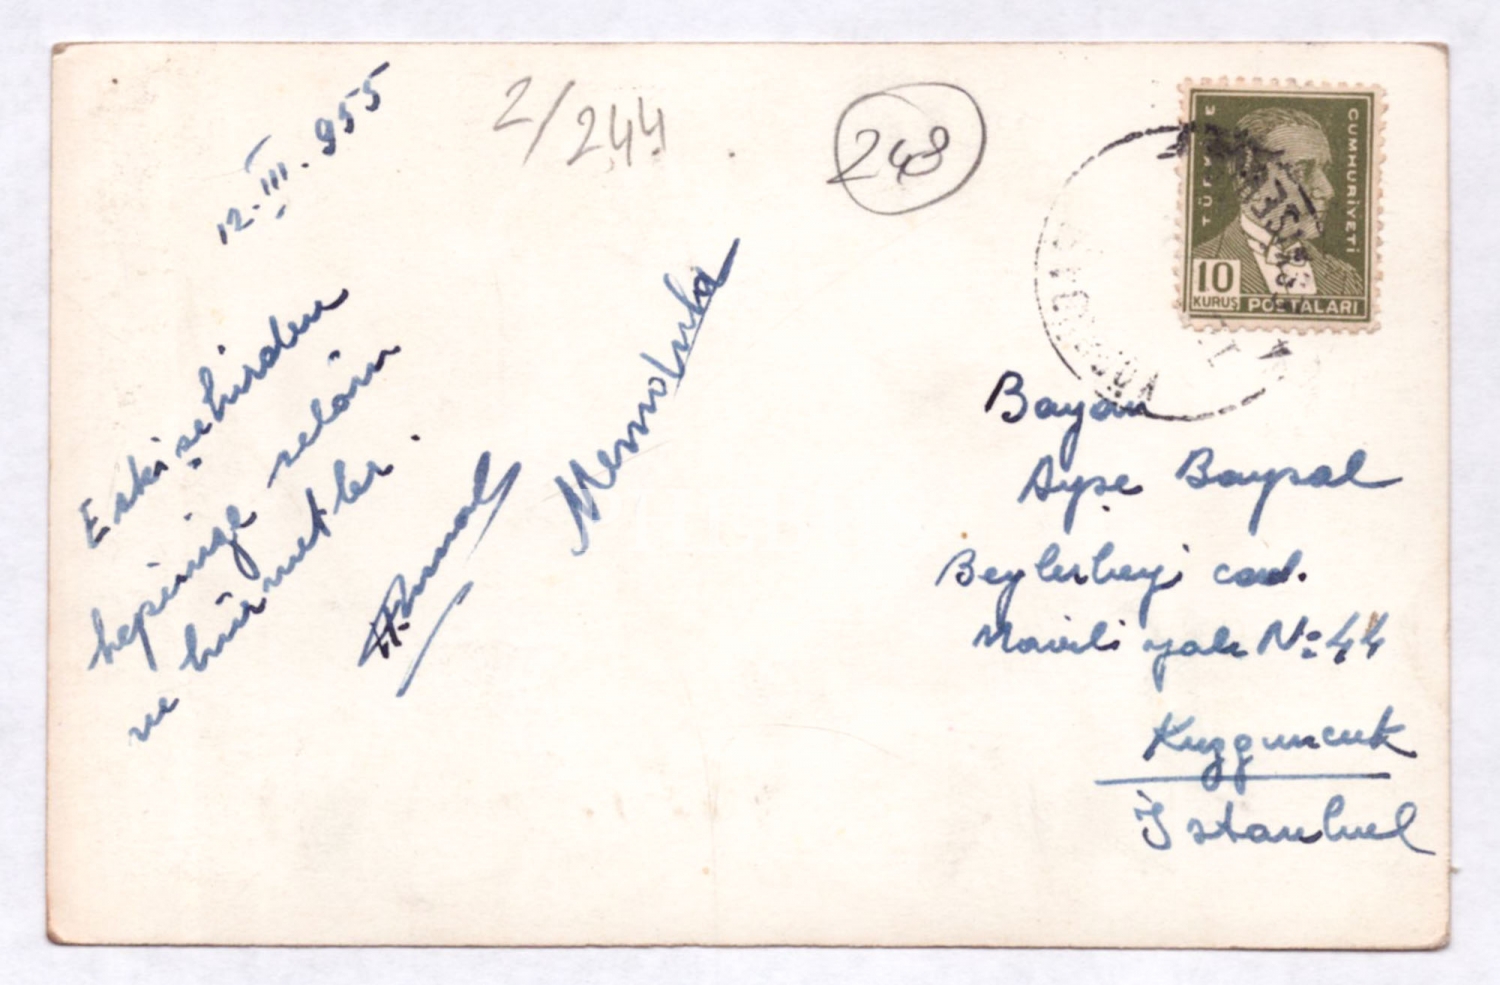 12.III.955
2/244
248
Eskişehirden
hepinize selâm
ve hürmetler.
TÜRKİYE CUMHURİYETİ
10
KURUŞ
POSTALARI
Bayan
Ayşe Baysal
Beylerbeyi cad.
Mavili yalı No: 44
Kuzguncuk
İstanbul